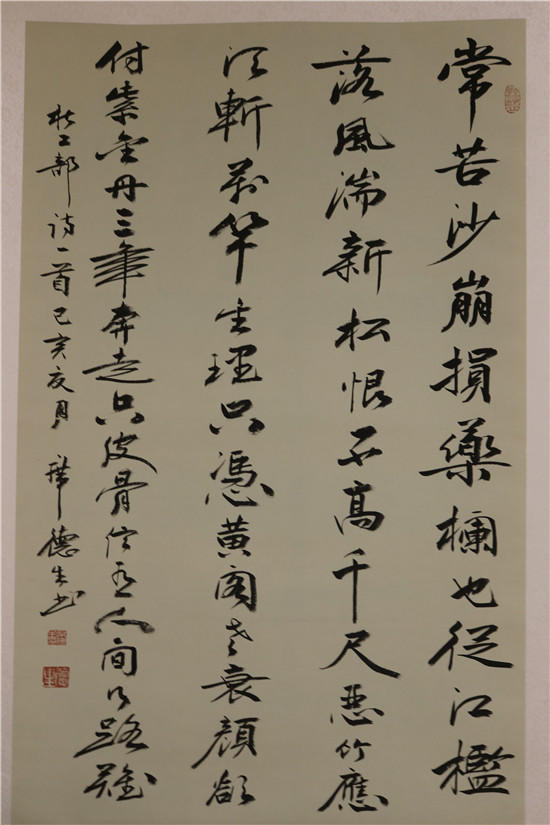 常苦沙崩損藥欄也從江檻
落風湍新松恨不高千尺惡竹應
須斬萬竿生理只憑黃閣老衰顏欲
付紫金丹三年奔走空皮骨信有人間行路難
杜工部詩一首己亥夏月 德生書